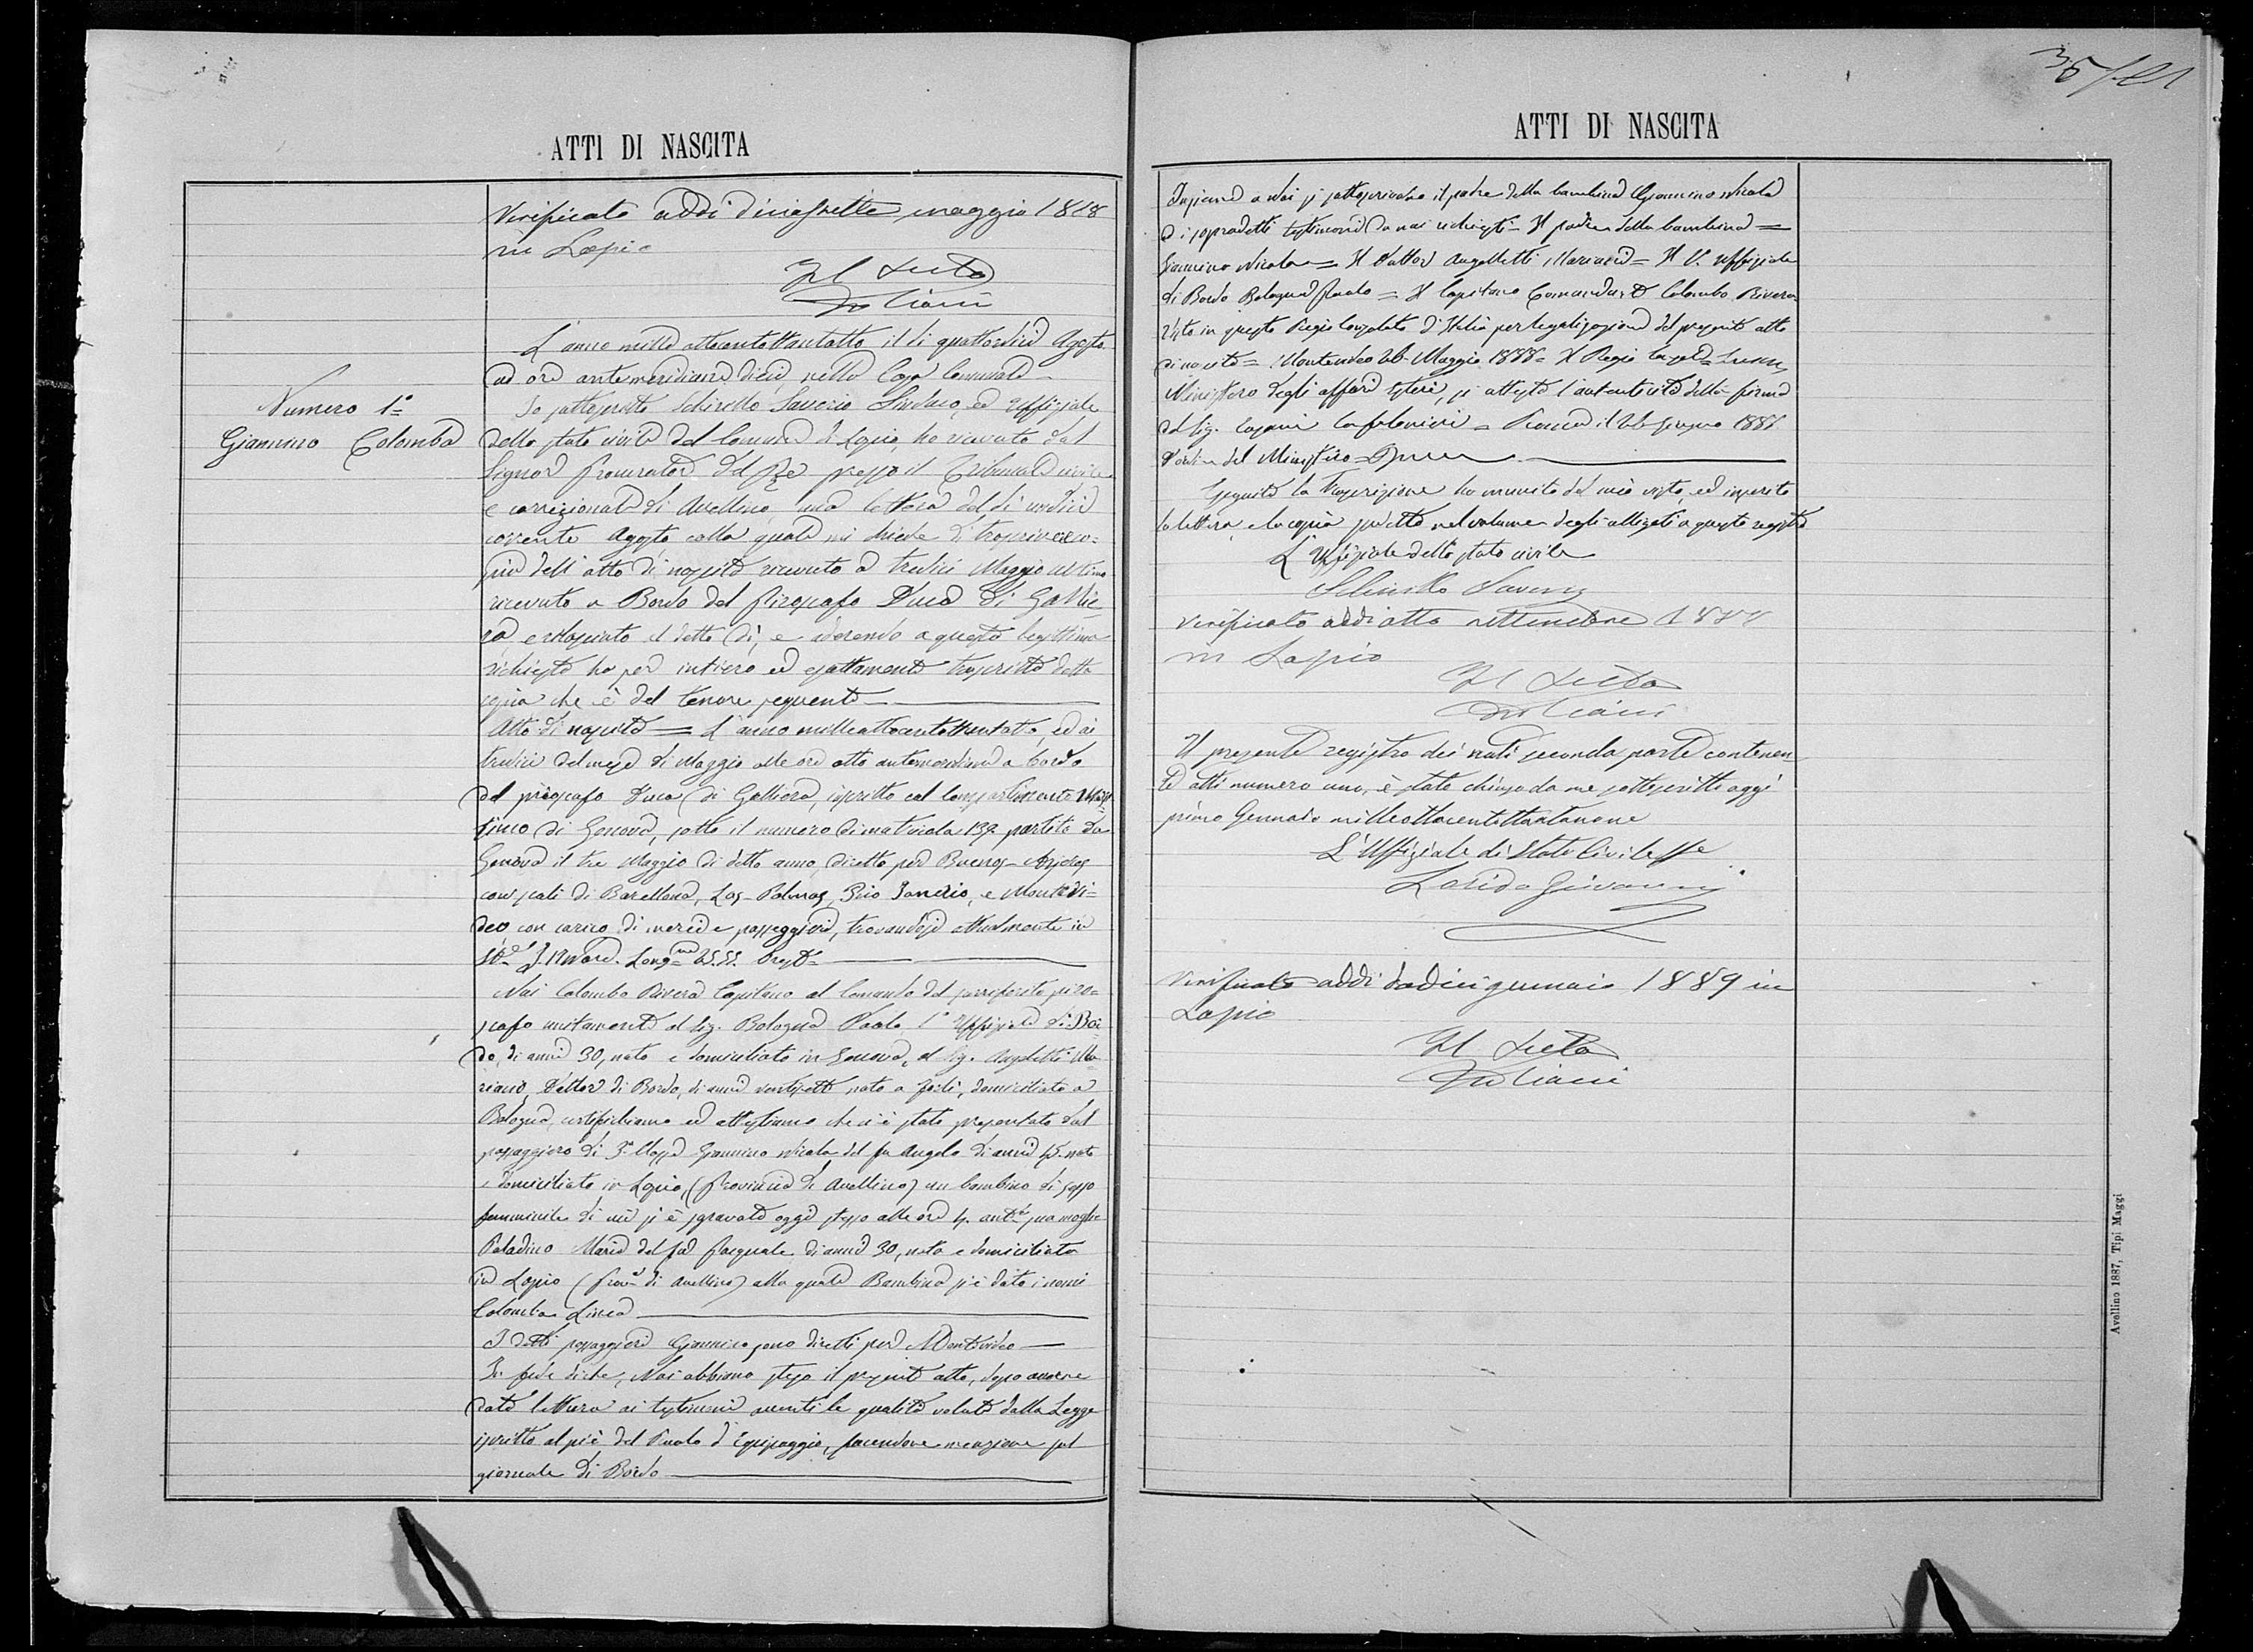 35
ATTI DI NASCITA
Verificato addì diciassette maggio 1888
in Lapio
Il
Giuliani
L'anno mille ottocentottantotto il dì quattordici Agosto
ad ore antimeridiane dieci nella Casa Comunale
Numero 1°
Giannino Colomba
Io sottoscritto Schirillo Saverio Sindaco, ed Uffiziale
dello stato civile del Comune di Lapio, ho ricevuto dal
Signor Procuratore del Re presso il Tribunale civile
e correzionale di Avellino una lettera del dì undici
corrente Agosto colla quale mi chiede di trascrivere co=
pia dell'atto di nascita ricevuto a tredici Maggio ultimo
ricevuto a Bordo del Piroscafo Duca di Gallie
ra, e rilasciata il detto dì, e aderendo a questa legittima
richiesta ho per intiero ed esattamente trascritto detta
copia che è del tenore seguente
Atto di nascita = L'anno milleottocentottantotto, ed ai
tredici del mese di Maggio alle ore otto antimeridiane a bordo
del piroscafo Duca di Galliera, iscritto al Compartimento Marit=
timo di Genova, sotto il numero di matricola 139 partito da
Genova il tre Maggio di detto anno, diretto per Buenos-Ayres
con scali di Barcellona, Las-Palmas, Rio Janeiro, e Montevi=
deo, con carico di merci e passeggieri, trovandosi attualmente in
Noi Colombo Rivera Capitano al Comando del surriferito piro=
scafo unitamente al Sig. Bologna Paolo 1° Uffiziale di Bor
do, di anni 30, nato e domiciliato in Genova, al Sig. Angeletti Ma=
riano, Dottor di Bordo, di anni ventisette nato a Forlì, domiciliato a
Bologna, certifichiamo ed attestiamo che ci è stato presentato dal
passaggiero di 3ª Classe Giannino Nicola del fu Angelo di anni 45 nato
e domiciliato in Lapio, (Provincia di Avellino) un bambino di sesso
femminile di cui si è sgravata oggi stesso alle ore 4. ant.e sua moglie
Paladino Maria del fu Pasquale di anni 30, nata e domiciliata
in Lapio (Prov.a di Avellino) alla quale Bambina si è dato i nomi
Colomba
I detti passaggieri Giannino sono diretti per Montevideo
In fede di che, Noi abbiamo steso il presente atto, dopo averne
dato lettura ai testimoni aventi le qualità volute dalla Legge
iscritto al piè del Ruolo d'Equipaggio, facendone menzione sul
giornale di Bordo
ATTI DI NASCITA
Insieme a noi si sottoscrivono il padre della bambina Giannino Nicola
e i sopradetti testimoni da noi richiesti = Il padre della bambina =
Giannino Nicola = Il Dottor Angeletti Mariano = Il 1° Uffiziale
di Bordo Bologna Paolo = Il Capitano Comandante Colombo Rivera
Visto in questo Regio Consolato d'Italia per legalizzazione del presente atto
di nascita = Montevideo 26 Maggio 1888 = Il Regio
Ministero degli affari Esteri, si attesta l'autenticità della firma
del Sig. = Roma il 26 Giugno 1888
D'ordine del Ministro =
Eseguita la trascrizione ho munito del mio visto, ed inserito
la lettera, e la copia suddetta nel volume degli allegati a questo registro
L'Uffiziale dello stato civile
Schirillo Saverio
Verificato addì otto settembre 1888
in Lapio
Il
Giuliani
Il presente registro dei nati seconda parte contenen
te atti numero uno, è stato chiuso da me sottoscritto oggi
primo Gennaio milleottocentottantanove
L'Uffiziale di Stato Civile ff.e
Giovanni
Verificato addì dodici gennaio 1889 in
Lapio
Il
Giuliani
Avellino 1887, Tipi Maggi